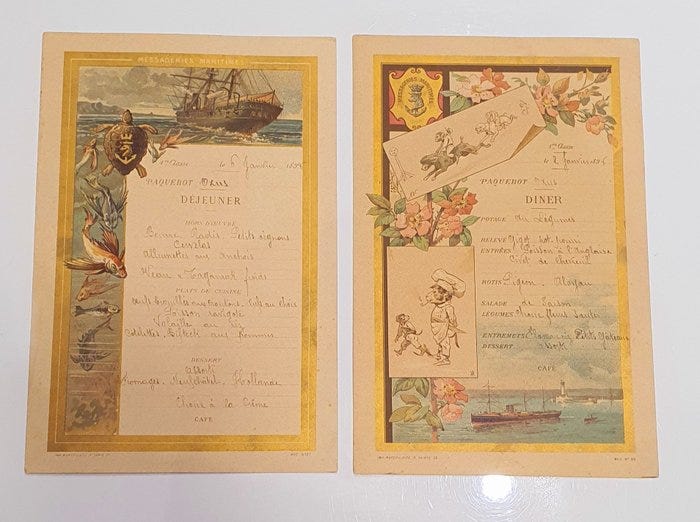 MESSAGERIES MARITIMES
1re Classe
le 6 Janvier
PAQUEBOT
DÉJEUNER
HORS D'ŒUVRE
Beurre Radis Petits oignons
Cervelas
Allumettes aux Anchois
froids
PLATS DE CUISINE
Oeufs brouillés aux croutons. Oeufs au choix
Poisson ravigote
Volaille au riz
Côtelettes, Bifteck aux Pommes
DESSERT
Assorti
Fromages. Neufchâtel. Hollande
Choux à la Crème
CAFÉ
MESSAGERIES MARITIMES
1re Classe
le 2 Janvier
PAQUEBOT
DINER
POTAGE aux Légumes
RELEVÉ Gigot
ENTRÉES Poisson à l'Anglaise
Civet de Chevreuil
ROTIS Pigeon. Aloyau
SALADE de Saison
LÉGUMES Choux fleurs Sautés
ENTREMETS Petits Gâteaux
DESSERT Assorti
CAFÉ